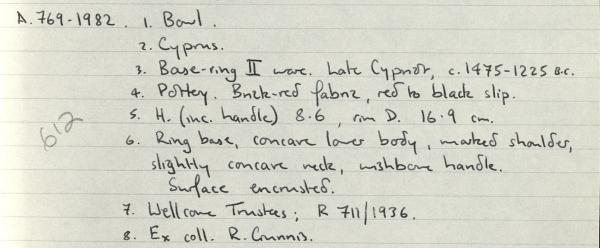 A.769-1982. 1. Bowl.
2. Cyprus.
3. Base-ring II ware. Late Cypriot, c.1475-1225 B.C.
4. Pottery. Brick-red fabric, red to black slip.
5. H. (inc. handle) 8.6, rim D. 16.9 cm.
612
6. Ring base, concave lower body, marked shoulder,
slightly concave neck, wishbone handle.
Surface encrusted.
7. Wellcome Trustees; R 711/1936.
8. Ex coll. R. Gunnis.